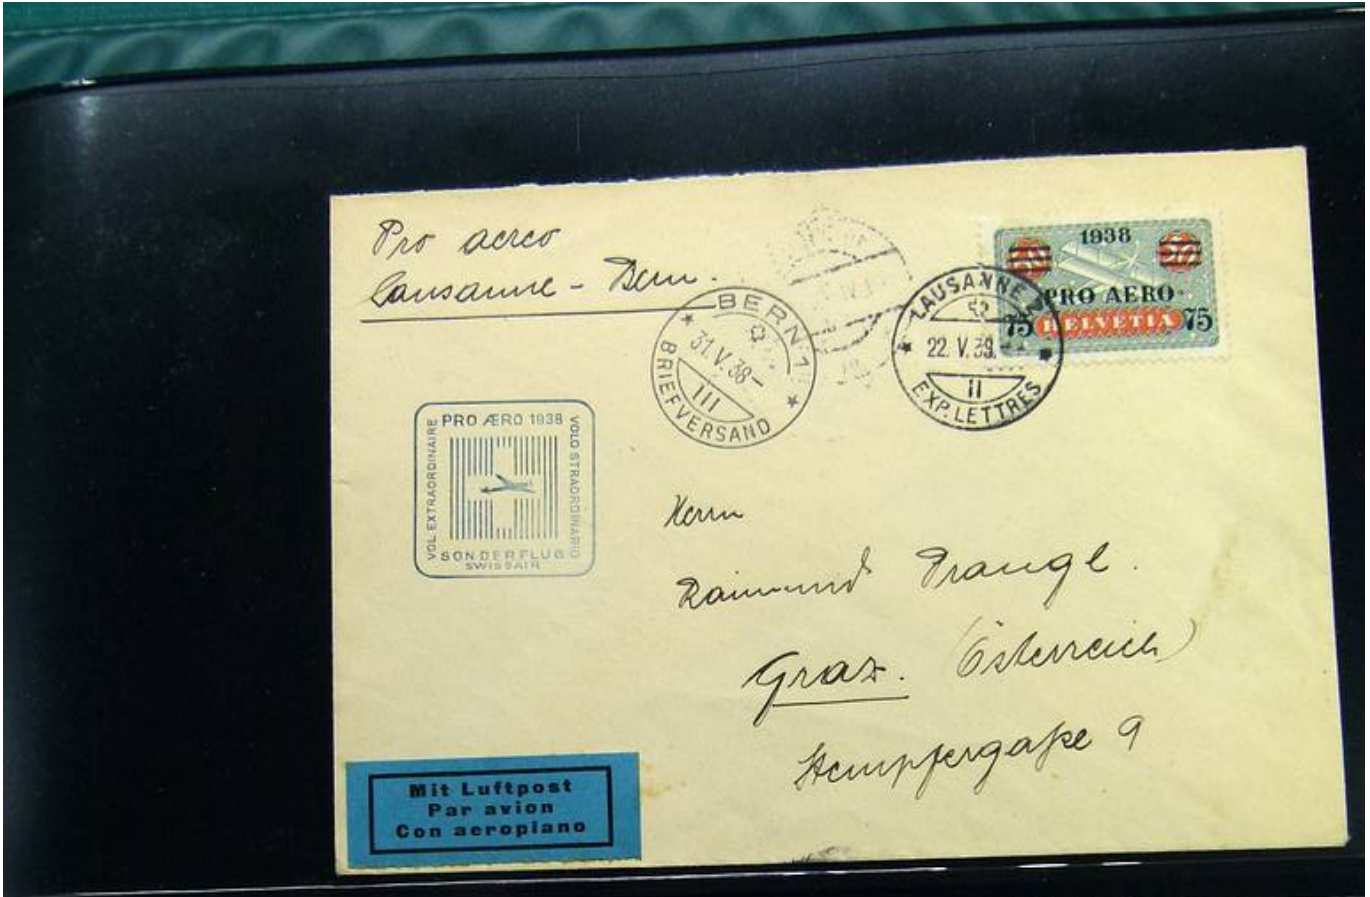 Pro aereo
Lausanne - Bern.
1938
PRO AERO
75 HELVETIA 75
LAUSANNE
22. V. 38.
II
EXP. LETTRES
BERN 1
31. V. 38-
III
BRIEFVERSAND
PRO ÆRO 1938
VOL EXTRAORDINAIRE
VOLO STRAORDINARIO
SONDERFLUG
SWISSAIR
Herrn
Raimund Prangl.
Graz. (Österreich)
Stempfergaße 9
Mit Luftpost
Par avion
Con aeroplano